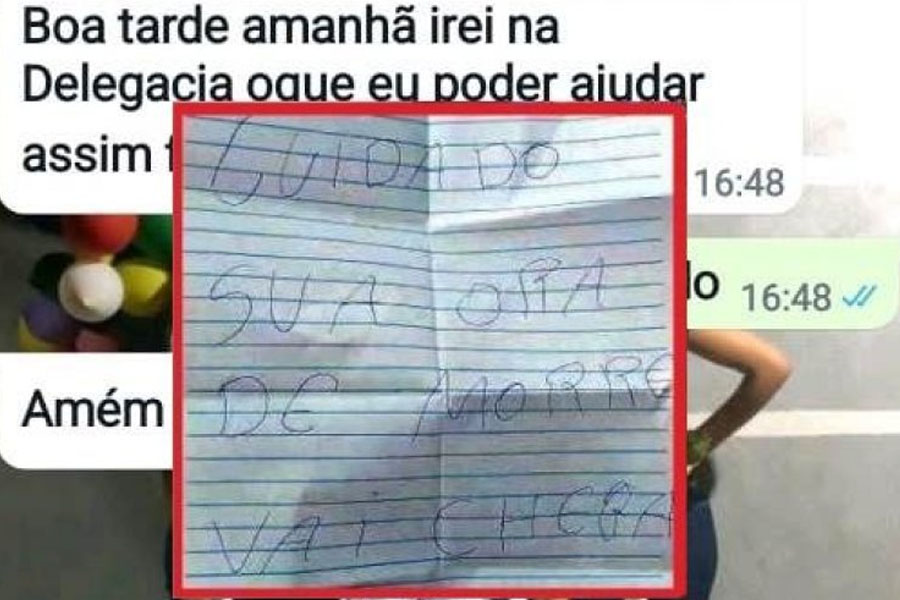 Boa tarde amanhã irei na
Delegacia oque eu poder ajudar
assim
16:48
16:48
Amém
CUIDADO
SUA ORA
DE MORRE
VAI CHEGA